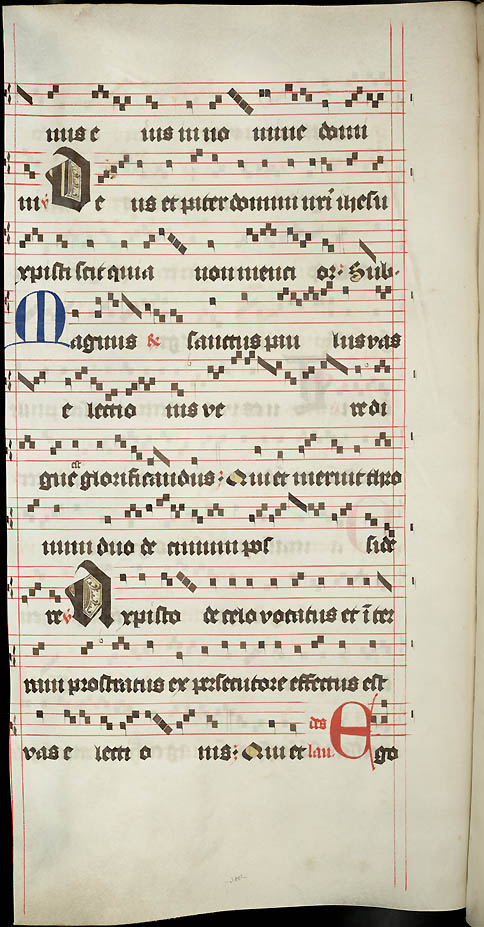 nus e ius in no mine domi
ni ℣ De us et pater domini nr̄i ihesu
xpisti scit quia non menti or: Sub.
Magnus & sanctus pau lus vas
e lectio nis ve re di
gne est glorificandus: Qui et meruit thro
num duo de cimum pos side
re ℣ A xpisto de celo vocatus et ī ter
ram prostratus ex persecutore effectus est
vas e lecti o nis: Qui et des lau. Ego